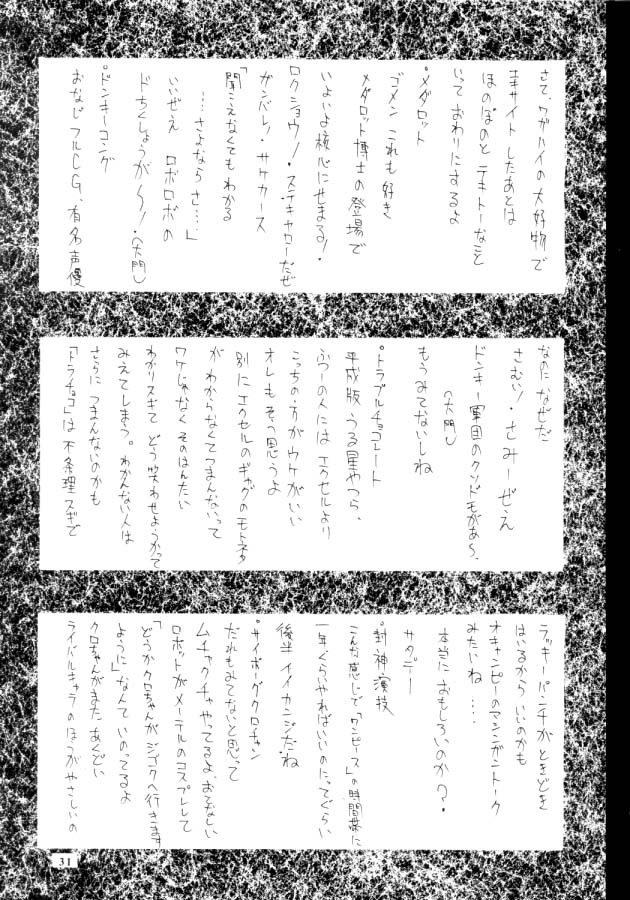 さて、ワガハイの大好物で
エキサイトしたあとは
ほのぼのとテキトーなこと
いっておわりにするよ
°メダロット
ゴメンこれも好き
メダロット博士の登場で
いよいよ核心にせまる！
ロクショウ！ステキャローだぜ
ガンバレ！サケカース
「聞こえなくてもわかる
…さよならさ…」
いいぜえ ロボロボの
ドちくしょうがっ！（大門）
°ドンキーコング
おなじフルCG、有名声優
なのになぜだ
さむい！さみーぜえ
ドンキー軍団のクソドモがあ〜、
（大門）
もうみてないしね
°トラブルチョコレート
平成版うる星やつら、
ふつーの人にはエクセルより
こっちの方がウケがいい
オレもそう思うよ
別にエクセルのギャグのモトネタ
がわからなくてつまんないって
ワケじゃなくそのはんたい
わかりスギてどう笑わせようかって
みえてしまう。わかんない人は
さらにつまんないのかも
「トラチョコ」は不条理スギで
ラッキーパンチがときどき
はいるからいいのかも
オキャンピーのマシンガントーク
みたいね……
本当におもしろいのか？・
サタデー
°封神演技
こんな感じで「ワンピース」の時間帯に
一年ぐらいやればいいのにってぐらい
後半イイカンジだね
°サイボーグクロチャン
だれもみてないと思って
ムチャクチャやってるよ、おぞましい
ロボットがメーテルのコスプレして
「どうかクロちゃんがジゴクへ行きます
ように」なんていのってるよ
クロちゃんがまたあくどい
ライバルキャラのほうがやさしいの
31